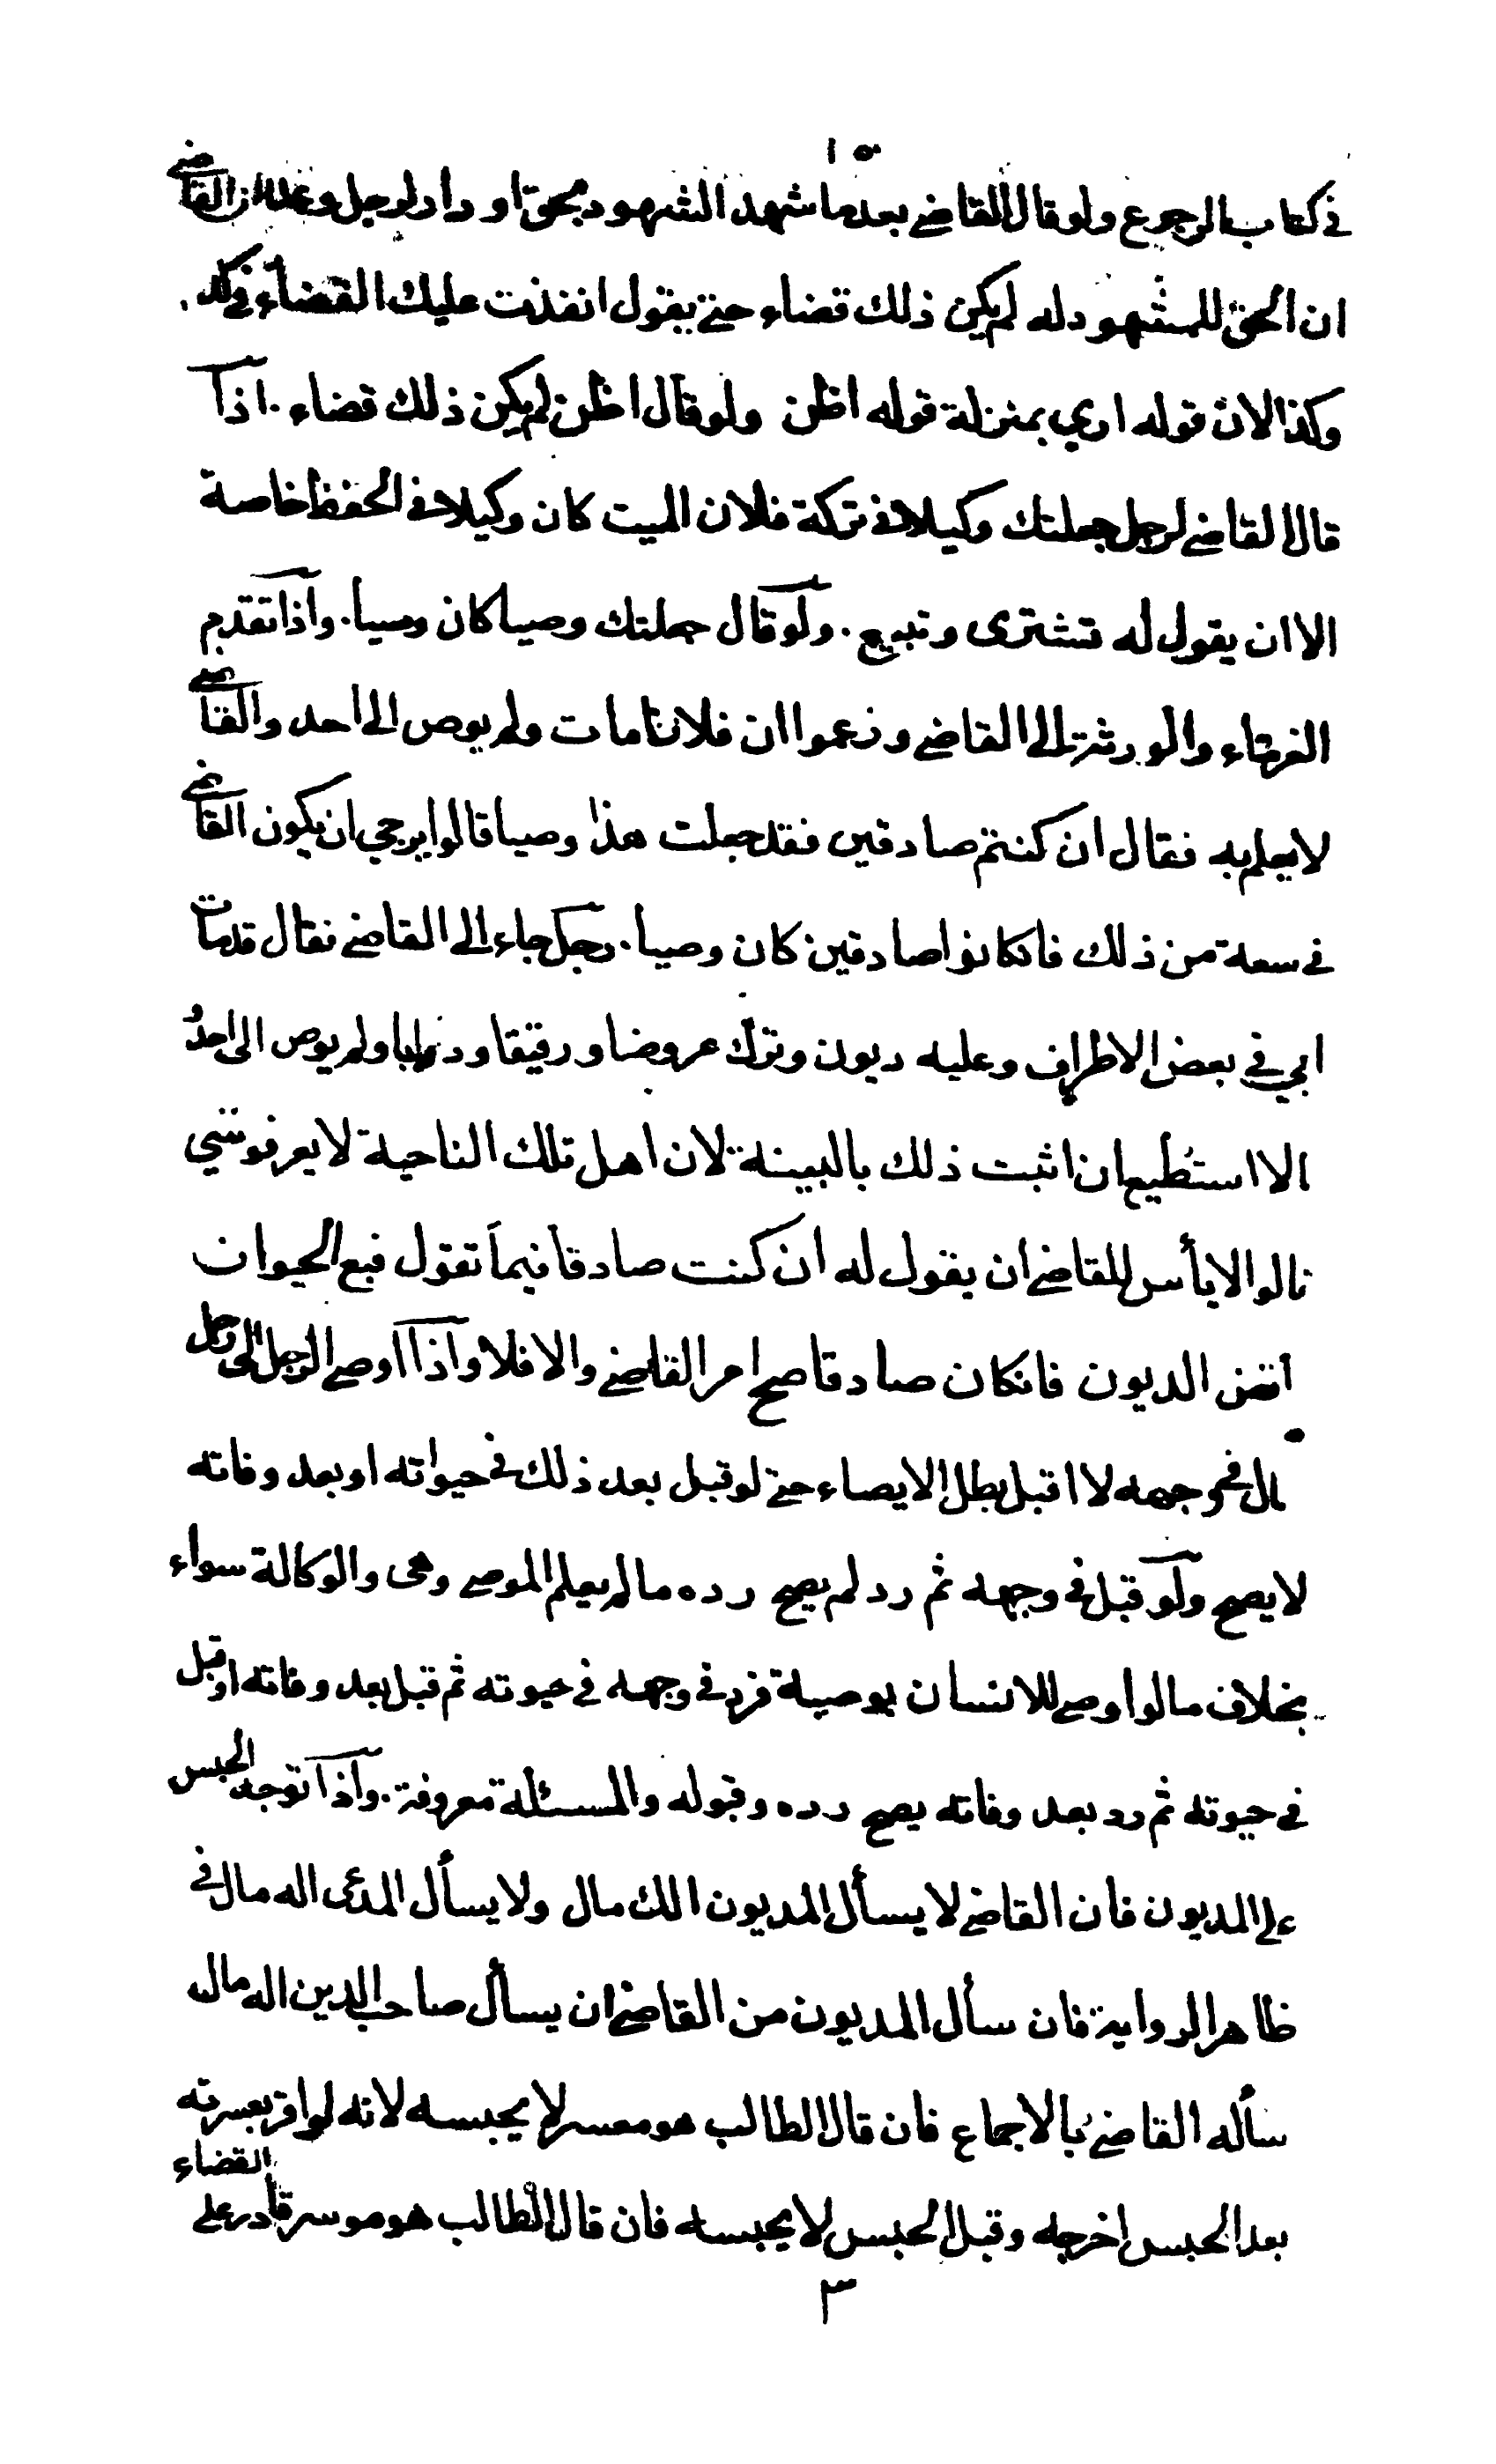 في كتاب الرجوع ولو قال القاضي بعد ما شهد الشهود بحق او دار لرجل وعدلا ارى القاضي
ان الحق للمشهود له لم يكن ذلك قضاء حتى يقول انفذت عليك القضاء
وكذا لان قوله اري بمنزلة قوله اظن ولو قال اظن لم يكن ذلك قضاء . اذا
قال القاضي لرجل جعلتك وكيلا في تركة فلان الميت كان وكيلا في الحفظ خاصة
الا ان يقول له تشترى وتبيع . ولو قال جعلتك وصيا كان وصيا . واذا تقدم
الغرماء والورثة الى القاضي وزعموا ان فلانا مات ولم يوص الى احد والقاضي
لا يعلم به فقال ان كنتم صادقين فقد جعلت هذا وصيا قالوا يرجى ان يكون القاضي
في سعة من ذلك فان كانوا صادقين كان وصيا . رجل جاء الى القاضي فقال قد مات
ابي في بعض الاطراف وعليه ديون وترك عروضا ورقيقا ودوابا ولم يوص الى احد
الا استطيع ان اثبت ذلك بالبينة لان اهل تلك الناحية لا يعرفوني
قالوا لا بأس للقاضي ان يقول له ان كنت صادقا فيما تقول فبع الحيوان
اقض الديون فان كان صادقا صح امر القاضي والا فلا واذا اوصى الرجل الى رجل
قال في وجهه لا اقبل بطل الايصاء حتى لو قبل بعد ذلك في حيواته او بعد وفاته
لا يصح ولو قبل في وجهه ثم رد لم يصح رده ما لم يعلم الموصي وهى والوكالة سواء
بخلاف ما لو اوصى للانسان بوصية فرد في وجهه في حيوته ثم قبل بعد وفاته او قبل
في حيوته ثم رد بعد وفاته يصح رده وقبوله والمسئلة معروفة . واذا توجه الحبس
على المديون فان القاضي لا يسأل المديون الك مال ولا يسأل المدعى اله مال في
ظاهر الرواية فان سأل المديون من القاضي ان يسأل صاحب الدين اله مال
سأله القاضي بالاجماع فان قال الطالب هو معسر لا يحبسه لانه لو اقر بعسرته
بعد الحبس اخرجه وقبل الحبس لا يحبسه فان قال الطالب هو موسر قادر على القضاء
٣